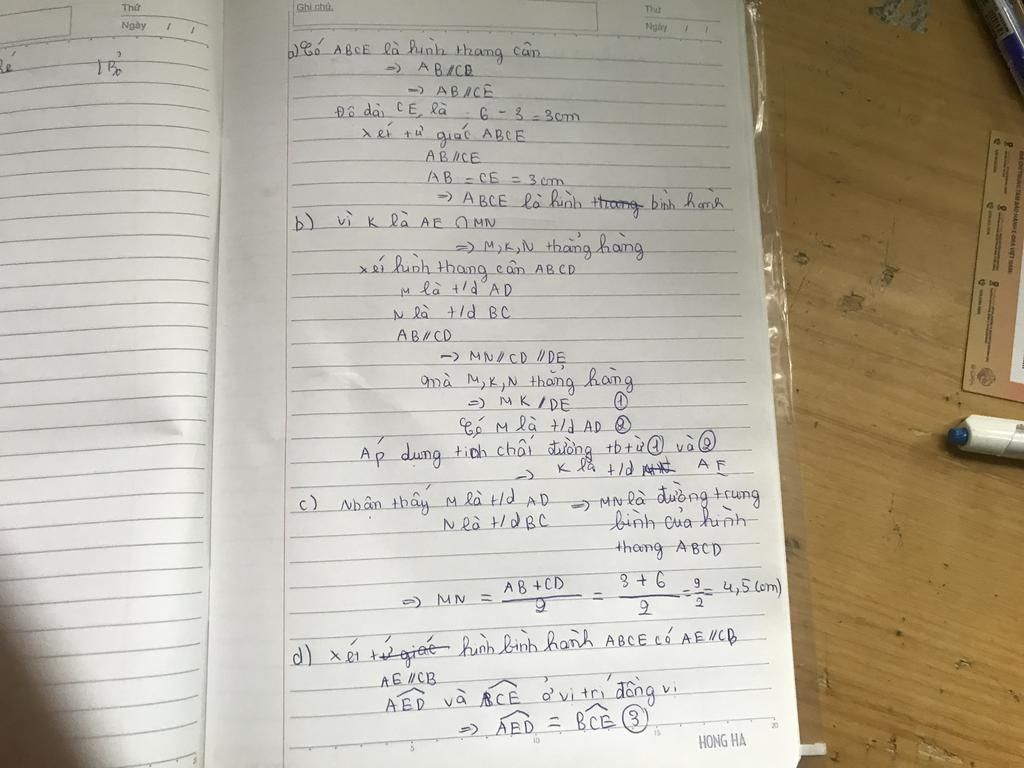 Thứ
Ngày / /
Ghi chú.
Thứ
Ngày / /
a) Có ABCE là hình thang cân
=> AB//CD
=> AB//CE
Độ dài CE là : 6 - 3 = 3cm
Xét tứ giác ABCE
AB//CE
AB = CE = 3cm
=> ABCE là hình thang bình hành
b) Vì K là AE ∩ MN
=> M, K, N thẳng hàng
Xét hình thang cân ABCD
M là t/d AD
N là t/d BC
AB//CD
=> MN//CD//DE
mà M, K, N thẳng hàng
=> MK//DE ①
Có M là t/d AD ②
Áp dụng tính chất đường tb từ ① và ②
=> K là t/d AE
c) Nhận thấy M là t/d AD => MN là đường trung
N là t/d BC bình của hình
thang ABCD
=> MN = (AB + CD)/2 = (3 + 6)/2 = 9/2 = 4,5 (cm)
d) Xét tứ giác hình bình hành ABCE có AE//CB
AE//CB
AED và BCE ở vị trí đồng vị
=> AED = BCE ③
5 10 15 20
HONG HA